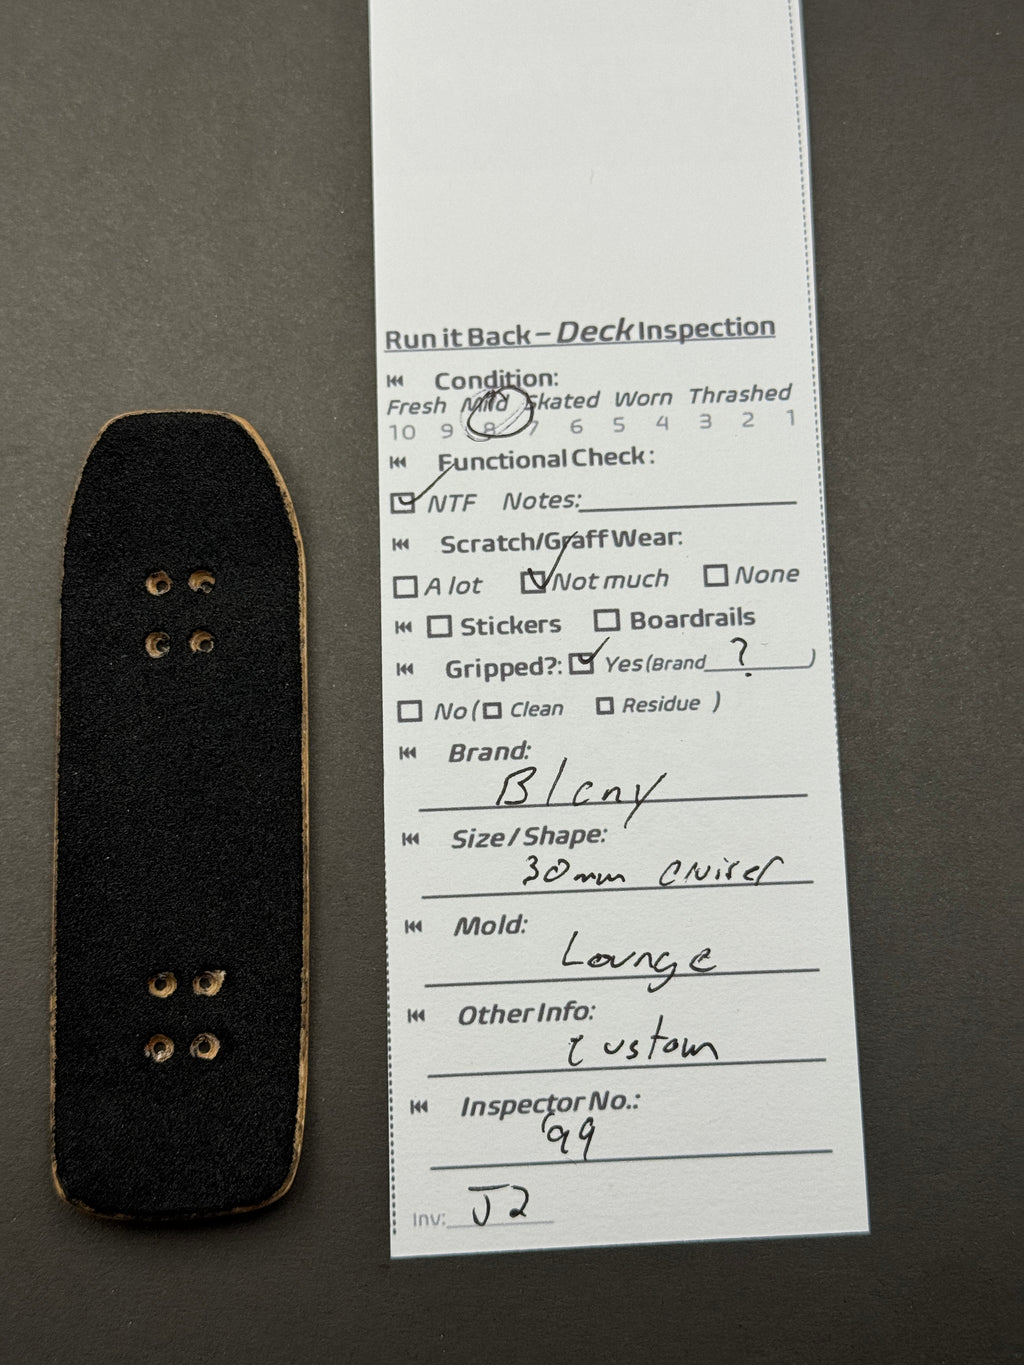 Run it Back – Deck Inspection
Condition:
Fresh Mild Skated Worn Thrashed
10 9 8 7 6 5 4 3 2 1
Functional Check:
NTF Notes:
Scratch/Graff Wear:
A lot Not much None
Stickers Boardrails
Gripped?: Yes (Brand ? )
No ( Clean Residue )
Brand:
Blcny
Size / Shape:
30mm cruiser
Mold:
Lounge
Other Info:
Custom
Inspector No.:
'99
Inv: J2